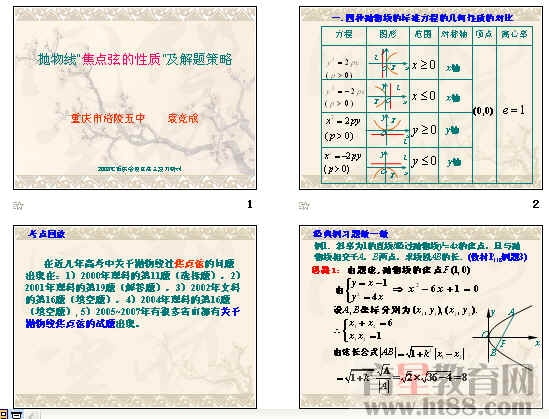 抛物线"焦点弦的性质"及解题策略
重庆市涪陵五中
1
一.四种抛物线的标准方程的几何性质的对比
方程 图形 范围 对称轴 顶点 离心率
y² = 2px
(p > 0)
x ≥ 0
x轴
y² = −2px
(p > 0)
x ≤ 0
x轴
x² = 2py
(p > 0)
y ≥ 0
y轴
x² = −2py
(p > 0)
y ≤ 0
y轴
(0,0)
e = 1
2
考点回放
在近几年高考中关于抛物线过焦点弦的问题
出现在:1)2000年理科的第11题(选择题)。2)
2001年理科的第19题(解答题)。3)2002年文科
的第16题(填空题)。4)2004年理科的第16题
(填空题)。5)2005~2007年有很多省市都有关于
抛物线焦点弦的试题出现。
3
经典例习题做一做
例1.斜率为1的直线经过抛物线y²=4x的焦点,且与抛
物线相交于A、B两点,求线段AB的长。
思路1:由题意,抛物线的焦点F(1,0)
由 { y = x − 1
y² = 4x
⇒ x² − 6x + 1 = 0
设A,B坐标分别为(x₁, y₁),(x₂, y₂).
∴ { x₁ + x₂ = 6
x₁x₂ = 1
由弦长公式|AB| = √1+k² |x₁ − x₂|
= √1+k² √Δ/|A| = √2 × √36−4 = 8
y
A
O
F
B
x
教育网
www.ht88.com
4